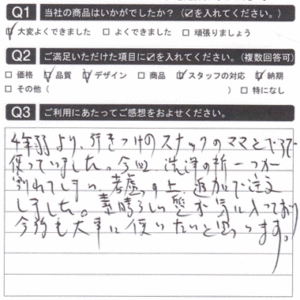 Q1 当社の商品はいかがでしたか？（☑を入れてください。）
☑大変よくできました □よくできました □頑張りましょう
Q2 ご満足いただけた項目に☑を入れてください。（複数回答可）
□価格 ☑品質 ☑デザイン □商品 ☑スタッフの対応 ☑納期
□その他（ ） □特になし
Q3 ご利用にあたってご感想をおよせください。
4年弱より、行きつけのスナックのママと
使っていました。今回、洗浄の折一つが
割れてしまい、考慮の上、追加で注文
しました。素晴らしい 気に入っており
今後も大事に使いたいと思います。